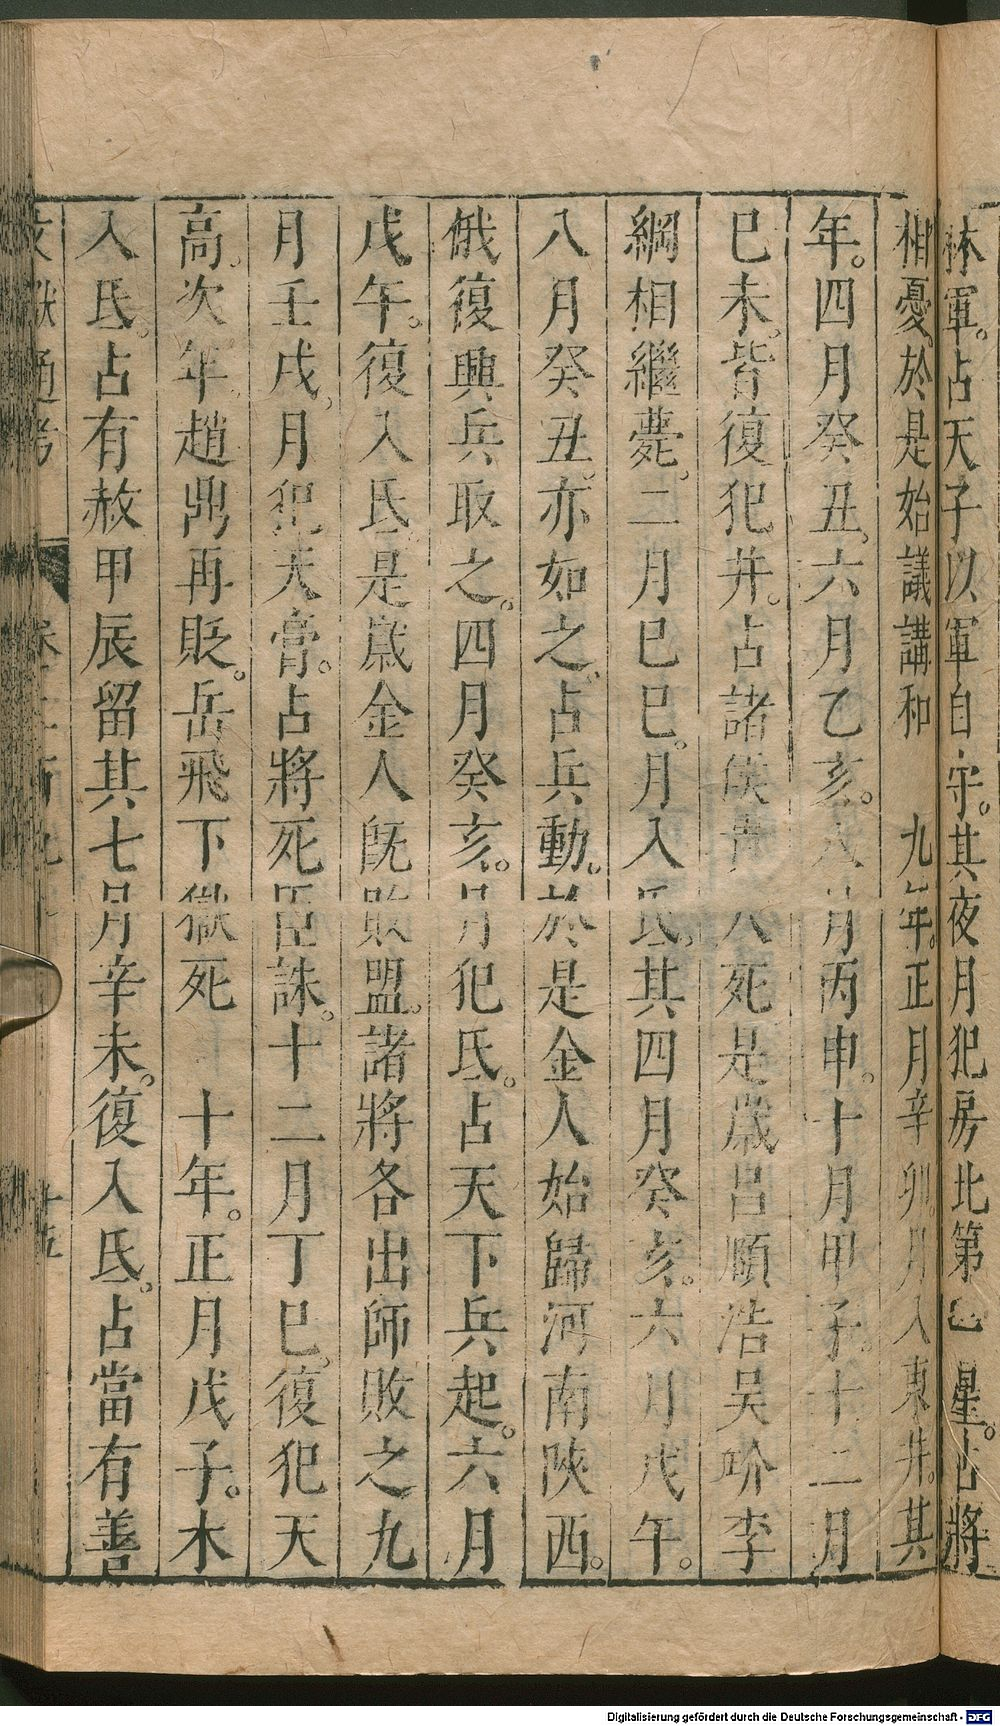 林軍。占天子以軍自守。其夜月犯房北第二星。占將
相憂。於是始議講和　九年。正月辛卯。月入東井。其
年。四月癸丑。六月乙亥。八月丙申。十月甲子。十二月
巳未。皆復犯井。占諸侯貴人死是歲呂順浩吴玠李
綱相繼薨。二月巳巳。月入氐。其四月癸亥。六月戊午。
八月癸丑。亦如之。占兵動。於是金人始歸河南陝西。
俄復興兵取之。四月癸亥。月犯氐。占天下兵起。六月
戊午。復入氐是歲金人旣敗盟。諸將各出師敗之九
月壬戌。月犯天膏。占將死臣誅。十二月丁巳。復犯天
高。次年。趙鼎再貶。岳飛下獄死　十年。正月戊子。木
入氐。占有赦甲辰留其七月辛未。復入氐。占當有善
文獻通考
Digitalisierung gefördert durch die Deutsche Forschungsgemeinschaft - DFG